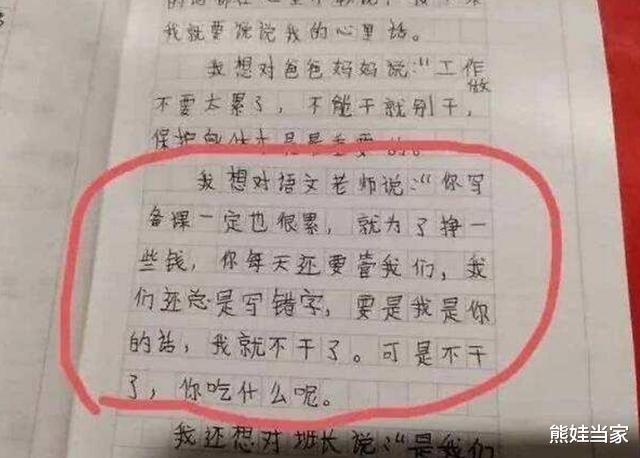 我就要说说我的心里话。
我想对爸爸妈妈说：“工作做
不要太累了，不能干就别干，
保护身体才是最重要的。
我想对语文老师说：“你写
备课一定也很累，就为了挣一
些钱，你每天还要管我们，我
们还总是写错字，要是我是你
的话，我就不干了。可是不干
了，你吃什么呢。
我还想对班长说：“是我们
熊娃当家